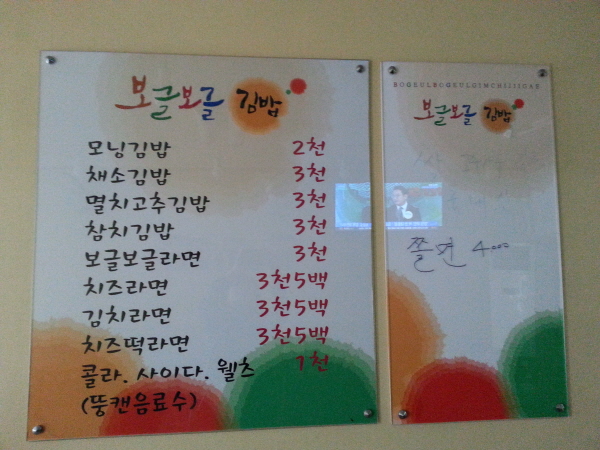 보글보글 김밥
모닝김밥 2천
채소김밥 3천
멸치고추김밥 3천
참치김밥 3천
보글보글라면 3천
치즈라면 3천5백
김치라면 3천5백
치즈떡라면 3천5백
콜라. 사이다. 웰츠 1천
(뚱캔음료수)
보글보글 김밥
쫄면 4000